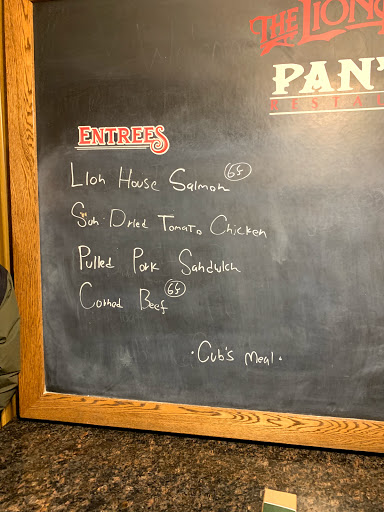 THE LION
PAN
RESTA
ENTREES
Lion House Salmon GF
Sun Dried Tomato Chicken
Pulled Pork Sandwich
Corned Beef GF
·Cub's Meal·